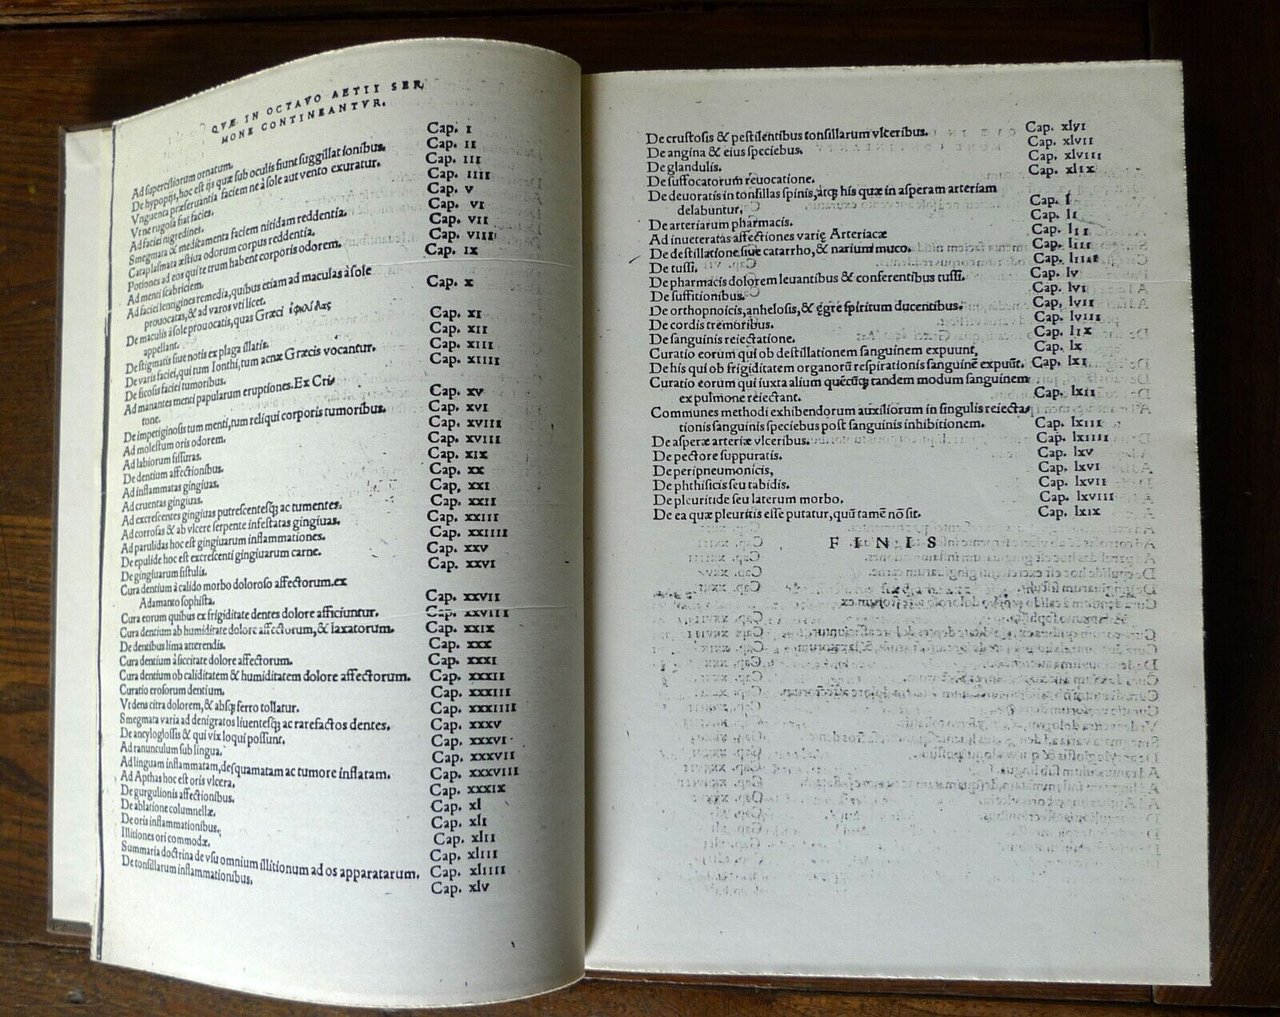 QVÆ IN OCTAVO AETII SER
MONE CONTINEANTVR.
Ad superciliorum ornatum. Cap. I
De hypopijs, hoc est ijs quæ sub oculis fiunt suggillationibus. Cap. II
Vnguenta præseruantia faciem ne à sole aut vento exuratur. Cap. III
Vt ne rugosa fiat facies. Cap. IIII
Ad faciei nigredines. Cap. v
Smegmata & medicamenta faciem nitidam reddentia. Cap. vI
Cataplasmata æstiua odorum corpus reddentia. Cap. vII
Potiones ad eos qui tetrum habent corporis odorem. Cap. vIII
Ad menti scabriciem. Cap. Ix
Ad faciei lentigines remedia, quibus etiam ad maculas à sole
prouocatas, & ad varos vti licet. Cap. x
De maculis à sole prouocatis, quas Græci ἐφηλίδας
appellant. Cap. xI
De stigmatis siue notis ex plaga illatis. Cap. xII
De varis faciei, qui tum Ionthi, tum acnæ Græcis vocantur. Cap. xIII
De ficosis faciei tumoribus. Cap. xIIII
Ad manantes menti papularum eruptiones. Ex Cri
tone. Cap. xv
De impetiginosis tum menti, tum reliqui corporis tumoribus. Cap. xvI
Ad molestum oris odorem. Cap. xvIII
Ad labiorum fissuras. Cap. xvIII
De dentium affectionibus. Cap. xIx
Ad inflammatas gingiuas. Cap. xx
Ad cruentas gingiuas. Cap, xxI
Ad excrescentes gingiuas putrescentesq; ac tumentes. Cap. xxII
Ad corrosas & ab vlcere serpente infestatas gingiuas. Cap. xxIII
Ad parulidas hoc est gingiuarum inflammationes. Cap. xxIIII
De epulide hoc est excrescenti gingiuarum carne. Cap. xxv
De gingiuarum fistulis. Cap. xxvI
Cura dentium à calido morbo doloroso affectorum. ex
Adamanto sophista. Cap. xxvII
Cura eorum quibus ex frigiditate dentes dolore afficiuntur. Cap. xxvIII
Cura dentium ab humiditate dolore affectorum, & laxatorum. Cap. xxIx
De dentibus lima atterendis. Cap. xxx
Cura dentium à siccitate dolore affectorum. Cap. xxxI
Cura dentium ob caliditatem & humiditatem dolore affectorum. Cap. xxxII
Curatio erosorum dentium. Cap. xxxIII
Vt dens citra dolorem, & absq; ferro tollatur. Cap. xxxIIII
Smegmata varia ad denigratos liuentesq; ac rarefactos dentes. Cap. xxxv
De ancyloglossis & qui vix loqui possunt. Cap. xxxvI
Ad ranunculum sub lingua. Cap. xxxvII
Ad linguam inflammatam, desquamatam ac tumore inflatam. Cap. xxxvIII
Ad Apthas hoc est oris vlcera. Cap. xxxIx
De gurgulionis affectionibus. Cap. xl
De ablatione columnellæ. Cap. xlI
De oris inflammationibus. Cap. xlII
Illitiones ori commodæ. Cap. xlIII
Summaria doctrina de vsu omnium illitionum ad os apparatarum. Cap. xlIIII
De tonsillarum inflammationibus. Cap. xlv
De crustosis & pestilentibus tonsillarum vlceribus. Cap. xlvI
De angina & eius speciebus. Cap. xlvII
De glandulis. Cap. xlvIII
De suffocatorum reuocatione. Cap. xlIx
De deuoratis in tonsillas spinis, atq; his quæ in asperam arteriam
delabuntur. Cap. l
De arteriarum pharmacis. Cap. lI
Ad inueteratas affectiones varię Arteriacæ Cap. lII
De destillatione siue catarrho, & narium muco. Cap. lIII
De tussi. Cap. lIIII
De pharmacis dolorem leuantibus & conferentibus tussi. Cap. lv
De suffitionibus. Cap. lvI
De orthopnoicis, anhelosis, & ęgre spiritum ducentibus. Cap, lvII
De cordis tremoribus. Cap. lvIII
De sanguinis reiectatione. Cap. lIx
Curatio eorum qui ob destillationem sanguinem expuunt, Cap. lx
De his qui ob frigiditatem organorū respirationis sanguinē expuūt. Cap. lxI
Curatio eorum qui iuxta alium quēcūq; tandem modum sanguinem
ex pulmone reiectant. Cap. lxII
Communes methodi exhibendorum auxiliorum in singulis reiecta
tionis sanguinis speciebus post sanguinis inhibitionem. Cap. lxIII
De asperæ arteriæ vlceribus. Cap. lxIIII
De pectore suppuratis. Cap. lxv
De peripneumonicis, Cap. lxvI
De phthisicis seu tabidis. Cap. lxvII
De pleuritide seu laterum morbo. Cap. lxvIII
De ea quæ pleuritis esse putatur, quū tamē nō sit. Cap. lxIx
FINIS